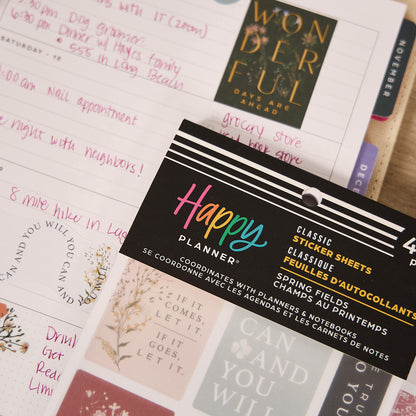 :30pm Dog groomers
6:30pm Dinner w/ Hayes family
555 in Long Beach
with IT (zoom)
WONDERFUL
DAYS ARE
AHEAD
NOVEMBER
SATURDAY - 18
:00am Nail appointment
night with neighbors!
grocery store
book store
DECE
8 mile hike in Lag
CAN AND YOU WILL YOU CAN AND
Happy
PLANNER®
CLASSIC
STICKER SHEETS
CLASSIQUE
FEUILLES D'AUTOCOLLANTS
SPRING FIELDS
CHAMPS AU PRINTEMPS
COORDINATES WITH PLANNERS & NOTEBOOKS
SE COORDONNE AVEC LES AGENDAS ET LES CARNETS DE NOTES
4
IF IT
COMES,
LET IT.
IF IT
GOES,
LET IT.
CAN
AND YOU
WILL
TRUE
TO YOU